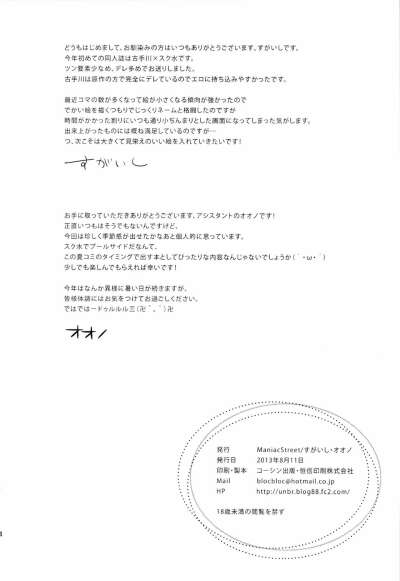 どうもはじめまして、お馴染みの方はいつもありがとうございます、すがいしです。
今年初めての同人誌は古手川×スク水でした。
ツン要素少なめ、デレ多めでお送りしました。
古手川は原作の方で完全にデレているのでエロに持ち込みやすかったです。
最近コマの数が多くなって絵が小さくなる傾向が強かったので
でかい絵を描くつもりでじっくりネームと格闘したのですが
時間がかかった割りにいつも通り小ぢんまりとした画面になってしまった気がします。
出来上がったものには概ね満足しているのですが…
つ、次こそは大きくて見栄えのいい絵を入れていきたいです!
すがいし
お手に取っていただきありがとうございます、アシスタントのオオノです!
正直いつもはそうでもないんですけど、
今回は珍しく季節感が出せたかなあと個人的に思っています。
スク水でプールサイドだなんて、
この夏コミのタイミングで出す本としてぴったりな内容なんじゃないでしょうか(｀・ω・´)
少しでも楽しんでもらえれば幸いです!
今年はなんか異様に暑い日が続きますが、
皆様体調にはお気をつけてお過ごしください。
ではではードゥルルル三(卍＾_＾)卍
オオノ
発行 ManiacStreet/すがいし・オオノ
発行日 2013年8月11日
印刷・製本 コーシン出版・恒信印刷株式会社
Mail blocbloc@hotmail.co.jp
HP http://unbr.blog88.fc2.com/
18歳未満の閲覧を禁ず